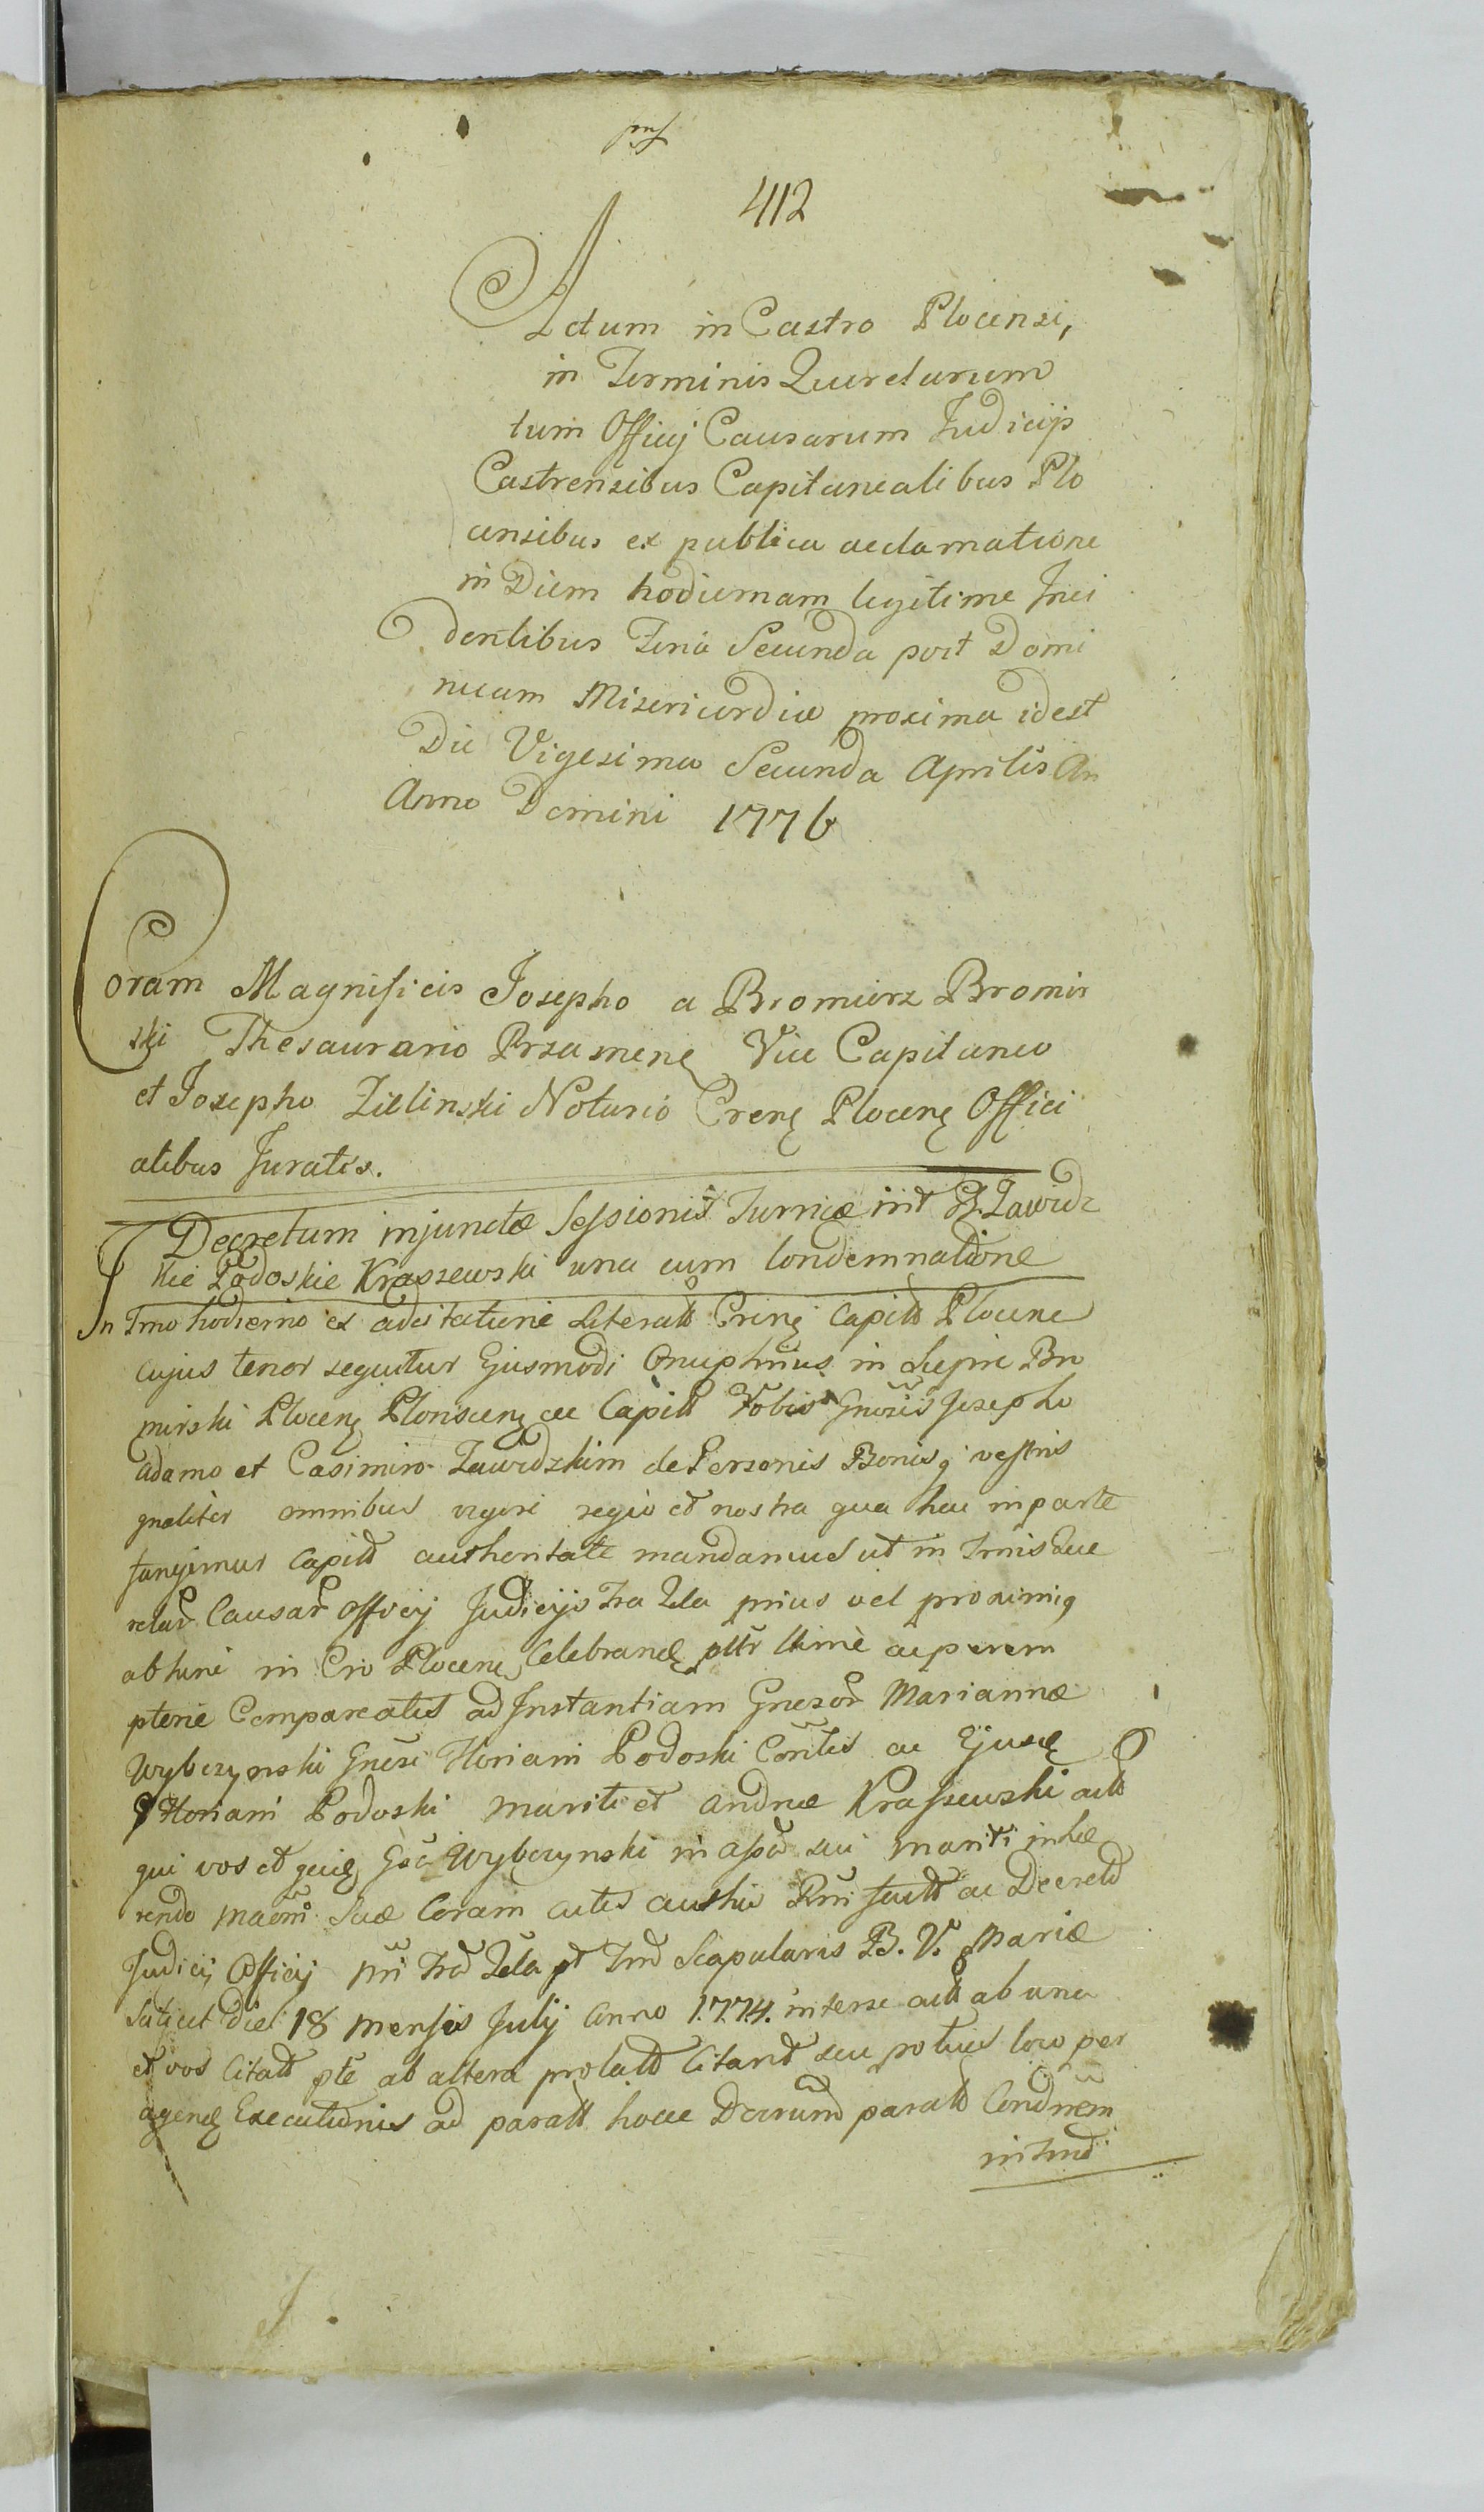 412
Actum in Castro Plocensi,
in Terminis Querelarum
tum Officij Causarum Judicijs
Castrensibus Capitanealibus Plo
censibus ex publica acclamatione
in Diem hodiernam legitime Inci
dentibus Feria Secunda post Domi
nicam Misericordiæ proxima idest
Die Vigesima Secunda Aprilis An
Anno Domini 1776
Coram Magnificis Josepho a Bromierz Bromir
ski Thesaurario Vice Capitaneo
et Josepho Zielinski Notario Plocenę Offici
alibus Juratis.
Decretum injunctæ Sessionis Turricæ int Zawidz
kie Podoskie Kraszewski una cum Condemnatione
In Tmo hodierno ex adcitatione Literali Capitt Plocenę
cujus tenor sequitur Ejusmodi Onuphrius in Bro
mirski Plocenę Plonscenę ac Capitt Vobis Gnosis Josepho
Adamo et Casimiro Zawidzkim de Personis Bonisq vestris
gnaliter omnibus vigore regio et nostra qua hac in parte
fungimur Capitt authoritate mandamus ut in Tmis Que
relar Causar Officij Judicijs prius vel proximiq
abhinc in Cro Plocenę Celebrandę acperem
ptorie Compareatis ad Instantiam Gnosor Mariannæ
Wybczynski Gnosi Floriani Podoski Contis ac Ejusdę
Floriani Podoski mariti et Andreæ Krassewski actt
qui vos et Wybczynski in sui mariti inhæ
rendo suæ Coram actis ac Decreto
Judicij Officij Scapularis B. V. Mariæ
Scilicet Diei 18 Mensis Julij Anno 1774. interse actt ab una
et vos Citatt pte ab altera prolatt Citant seu potius loco per
agendę Executionis ad paratt hocce paratt Condnem